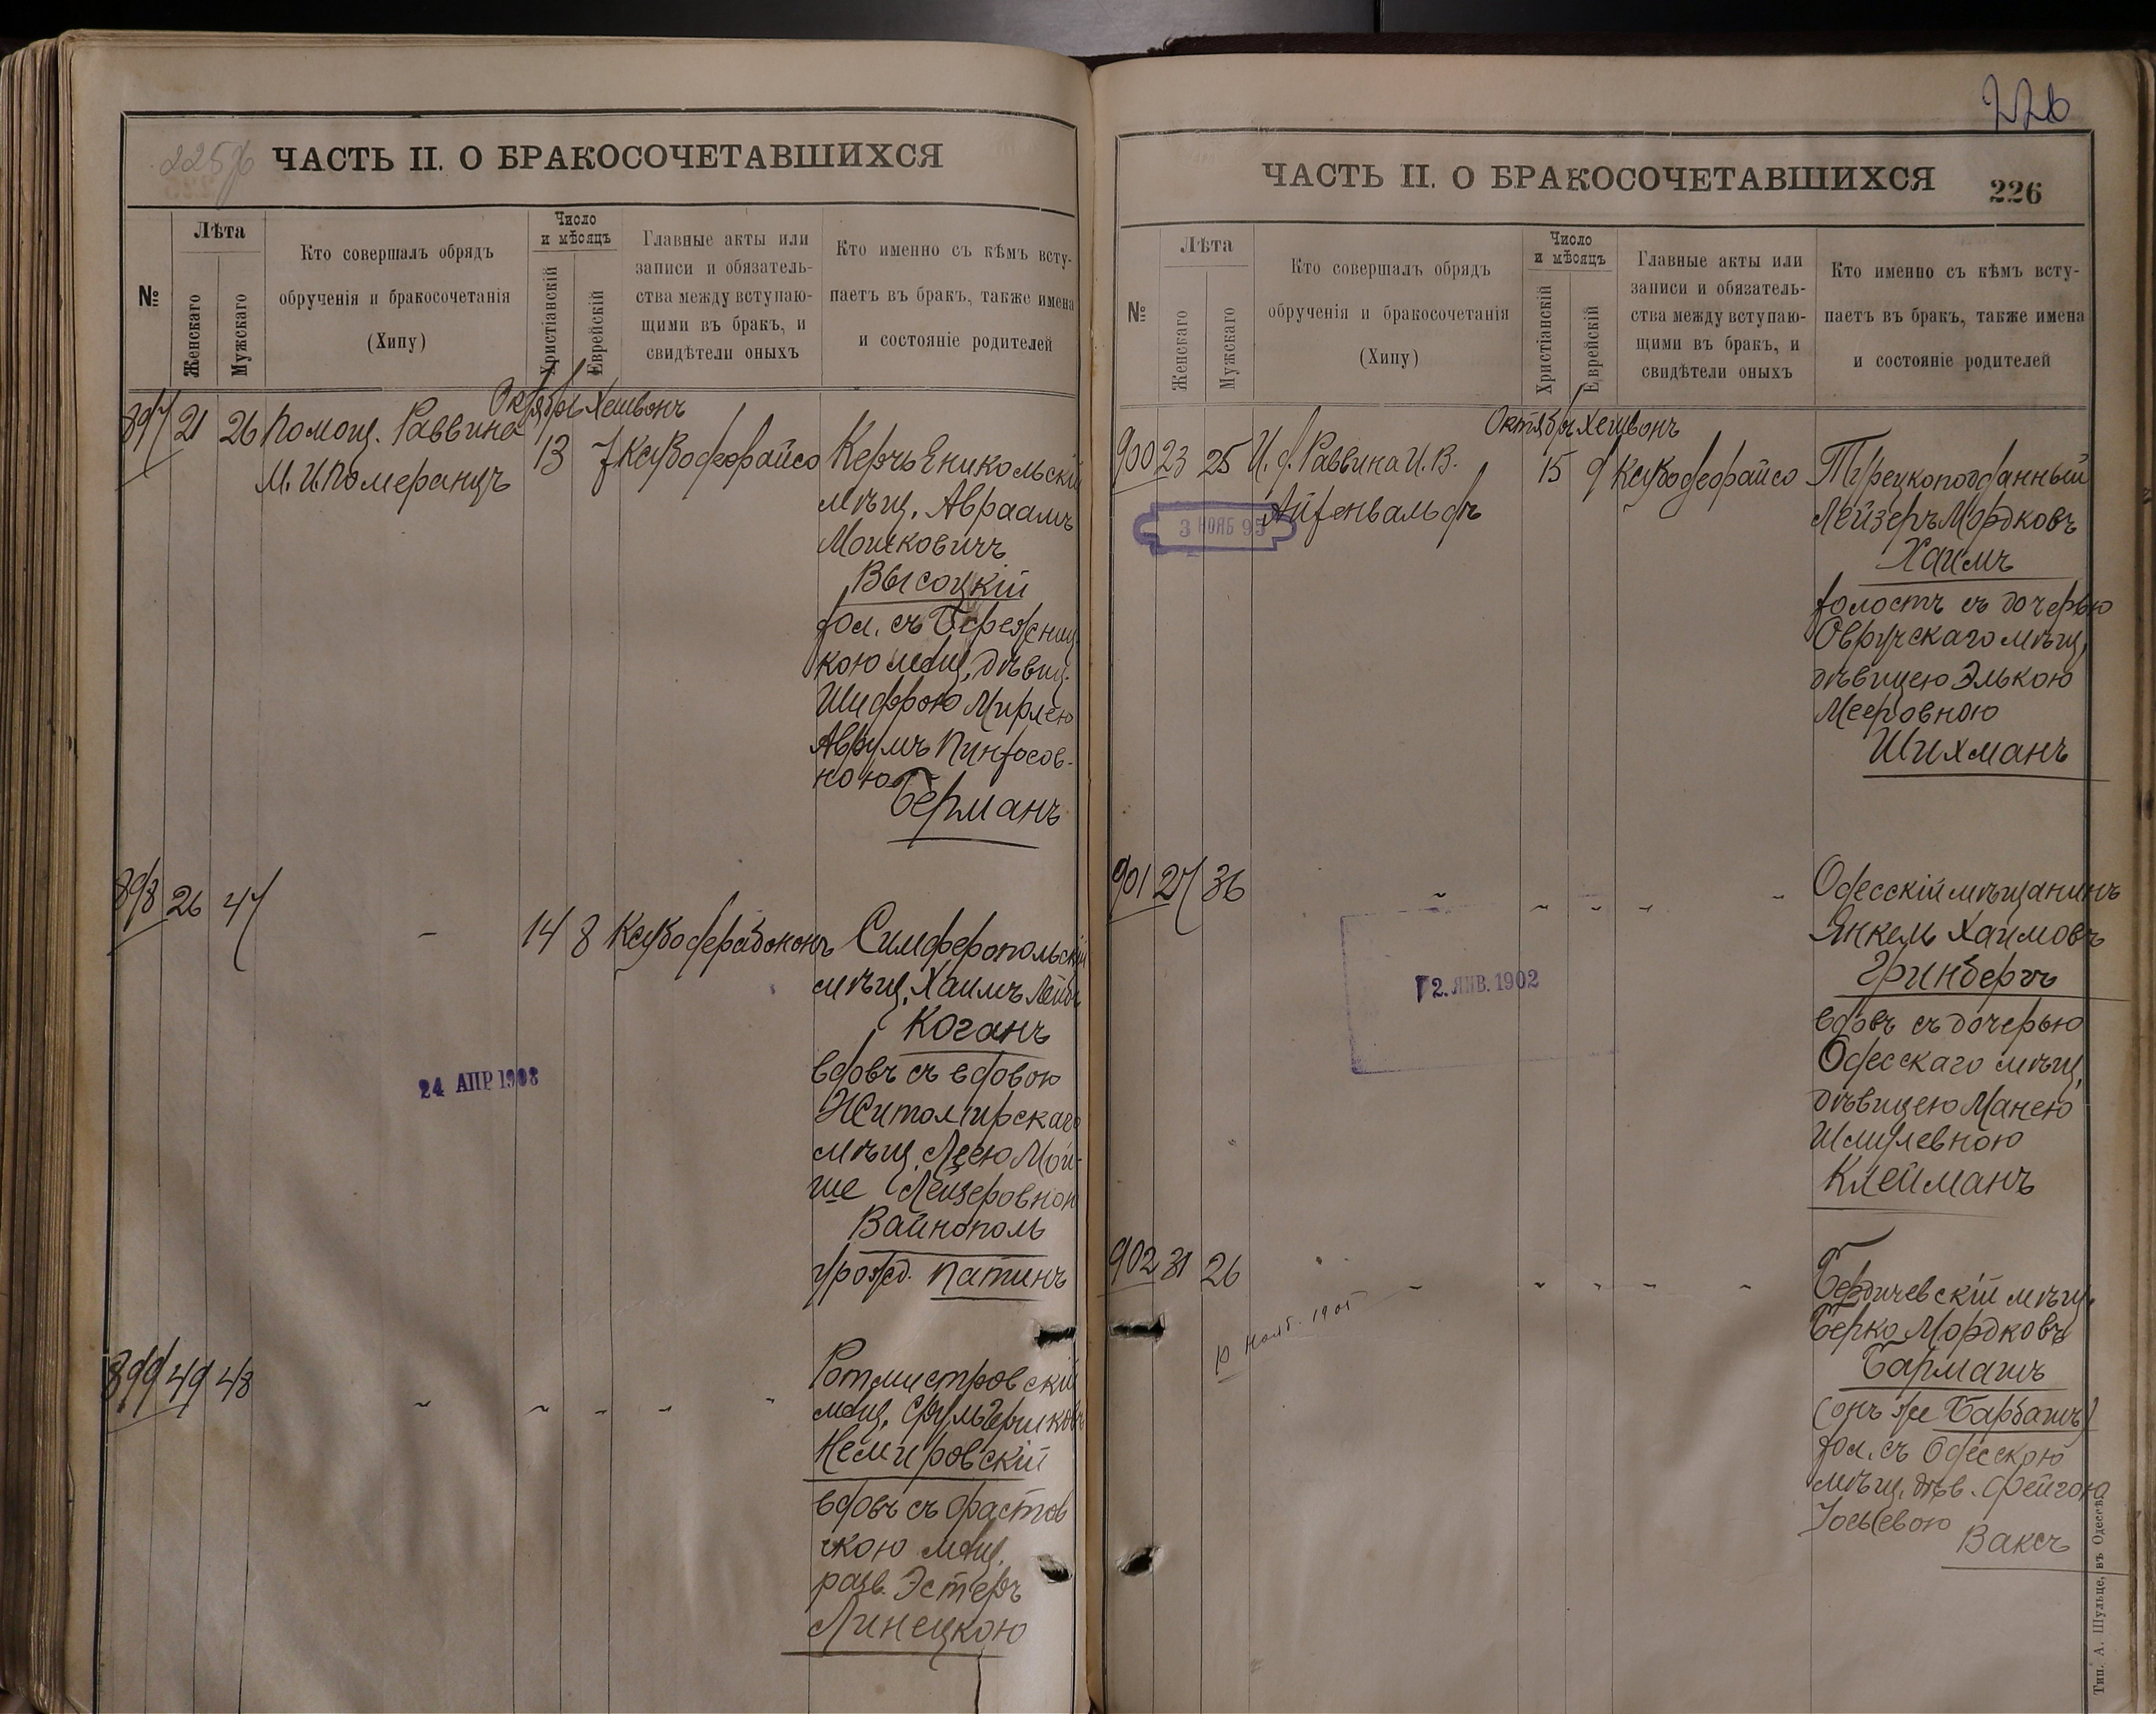 225об
ЧАСТЬ II. О БРАКОСОЧЕТАВШИХСЯ
№
Лѣта
Женскаго
Мужскаго
Кто совершалъ обрядъ
обрученія и бракосочетанія
(Хипу)
Число
и мѣсяцъ
Христіанскій
Еврейскій
Главные акты или
записи и обязатель-
ства между вступаю-
щими въ бракъ, и
свидѣтели оныхъ
Кто именно съ кѣмъ всту-
паетъ въ бракъ, также имена
и состояніе родителей
Октябрь Хешвонъ
897 21 26 Помощ. Раввина
М. И. Померанцъ
13 7
Ксубодеорайсо
Керчь Еникольскій
мѣщ. Авраамъ
Мошковичъ
Высоцкій
хол. съ Бережниц-
кою мѣщ. дѣвиц.
Шифрою Мирлею
Аврумъ Пинхосов-
ною
Берманъ
898 26 47 - 14 8 Ксубодерабононъ
Симферопольскій
мѣщ. Хаимъ Лейб.
Коганъ
вдовъ съ вдовою
Житомирскаго
мѣщ. Леею Мой-
ше Лейзеровною
Вайнополь
урожд. Патинъ
24 АПР 1908
899 49 48 ~ ~ ~ ~ ~
Ротмистровскій
мѣщ. Сруль Гершковъ
Немировскій
вдовъ съ Фастов
скою мѣщ.
разв. Эстеръ
Линецкою
226
ЧАСТЬ II. О БРАКОСОЧЕТАВШИХСЯ
226
№
Лѣта
Женскаго
Мужскаго
Кто совершалъ обрядъ
обрученія и бракосочетанія
(Хипу)
Число
и мѣсяцъ
Христіанскій
Еврейскій
Главные акты или
записи и обязатель-
ства между вступаю-
щими въ бракъ, и
свидѣтели оныхъ
Кто именно съ кѣмъ всту-
паетъ въ бракъ, также имена
и состояніе родителей
Октябрь Хешвонъ
900 23 25 И. д. Раввина И. В.
Айхенвальдъ
15 9 Ксубодеорайсо
3 НОЯБ 95
Турецкоподданный
Лейзеръ Мордковъ
Хаимъ
холостъ съ дочерью
Овручскаго мѣщ.
дѣвицею Элькою
Мееровною
Шихманъ
901 27 36 ~ ~ ~ ~ ~
Одесскій мѣщанинъ
Янкель Хаимовъ
Гринбергъ
вдовъ съ дочерью
Одесскаго мѣщ.
дѣвицею Манею
Шмулевною
Клейманъ
2. ЯНВ. 1902
902 31 26 ~ ~ ~ ~ ~
10 Нояб. 1905
Бердичевскій мѣщ.
Берко Мордковъ
Бармашъ
(онъ же Барбашъ)
хол. съ Одесскою
мѣщ. дѣв. Фейгою
Іосьевою
Ваксъ
Тип. А. Шульце, въ Одессѣ.